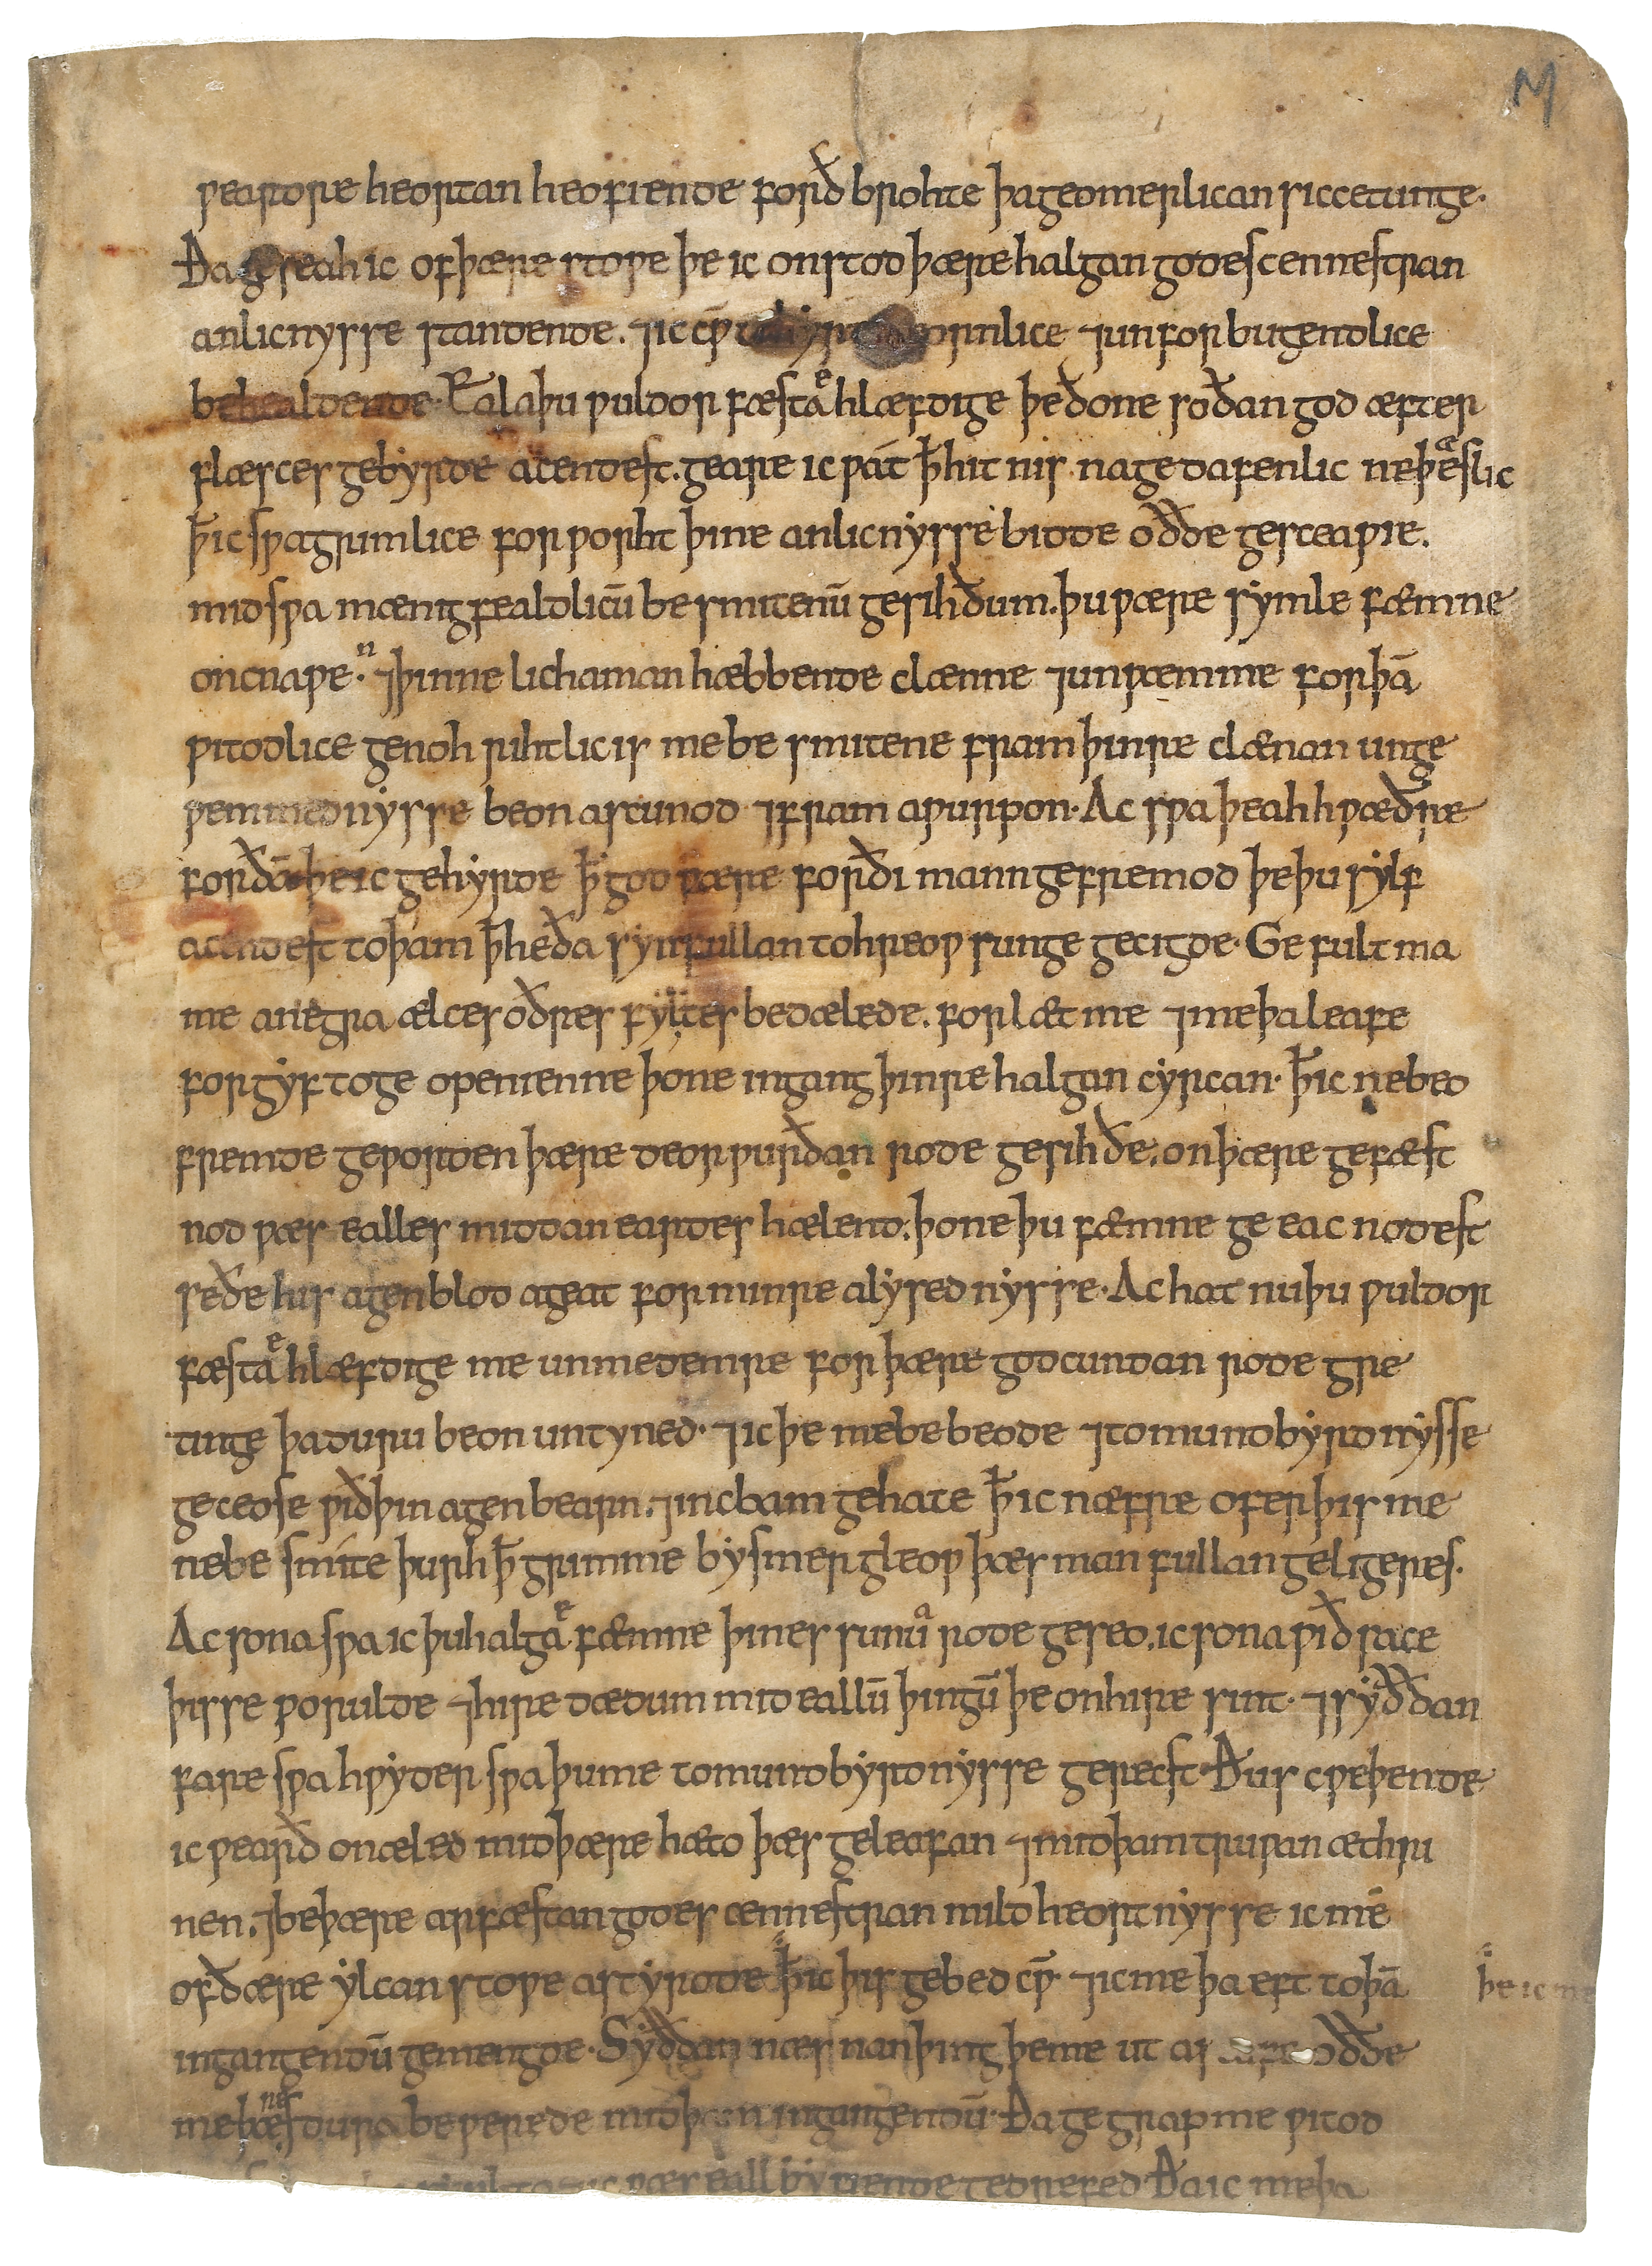 ƿeardre heortan heofiende forð brohte þa geomerlican siccetunge.
Ða geseah ic of þære stoƿe þe ic on stod þære halgan godes cennestran
anlicnysse standende. ⁊ ic cƿ̄ to hyre geornlice ⁊ unforbugendlice
behealdende. Eala þu ƿuldorfæsta`e´ hlæfdige þe ðone soðan god æfter
flæsces gebyrde acendest. geare ic ƿát ꝥ hit nis na gedafenlic ne þe`a´slic
ꝥ ic sƿa grimlice forƿorht þine anlicnysse bidde oððe gesceaƿie.
mid sƿa mænigfealdlicū besmitenū gesihðum. þu ƿære symle fæmne
oncnaƿe`n´. ⁊ þinne lichaman hæbbende clænne ⁊ unƿemme forþā
ƿitodlice genoh rihtlic is me besmitene fram þinre clænan unge
ƿemmednysse beon ascunod ⁊ fram aƿurpon. Ac sƿa þeah hƿæðre
forðā þe ic gehyrde ꝥ god ƿære forði mann gefremod þe þu sylf
acendest to þam ꝥ he ða synfullan to hreoƿsunge gecigde. Gefultma
me anegra ælces oðres fylstes bedælede. forlæt me ⁊ me þa leafe
forgyf to geopenienne þone ingang þinre halgan cyrcan. ꝥ ic ne beo
fremde geƿorden þære deorƿurðan rode gesihðe. on þære gefæst
nod ƿæs ealles middaneardes hælend. þone þu fæmne geeacnodest
se ðe his agen blod ageat for minre alysednysse. Ac hat nu þu ƿuldor
fæsta`e´ hlæfdige me unmedemre for þære godcundan rode gre
tinge þa duru beon untyned. ⁊ ic þe me bebeode ⁊ to mundbyrdnysse
geceose ƿið þin agen bearn. ⁊ inc bam gehate ꝥ ic næfre ofer þis me
ne besmíte þurh ꝥ grimme bysmergleoƿ þæs manfullan geligeres.
Ac sona sƿa ic þu halga`e´ fæmne þines sunu`a´ rode geseo. ic sona ƿiðsace
þisse ƿorulde ⁊ hire dædum mid eallū þingū þe on hire sint. ⁊ syððan
fare sƿa hƿyder sƿa þu me to mundbyrdnysse gerecst. Ðus cƿeþende
ic ƿearð onæled mid þære hæto þæs geleafan ⁊ mid þam truƿan æthri
nen. ⁊ be þære arfæstan godes cennestran mildheortnysse ic me
of ðære ylcan stoƿe astyrode ꝥ ic þis gebed cƿ̄ ⁊ ic me þa eft to þā
þe ic me
ingangendū gemengde. Syððan næs nan þing þe me ut asceufe oððe
me þæs dura beƿerede mid þam ingangendū. Ða gegrap me ƿitod
ic ƿæs eall byfiende gedrefed Ða ic me þa